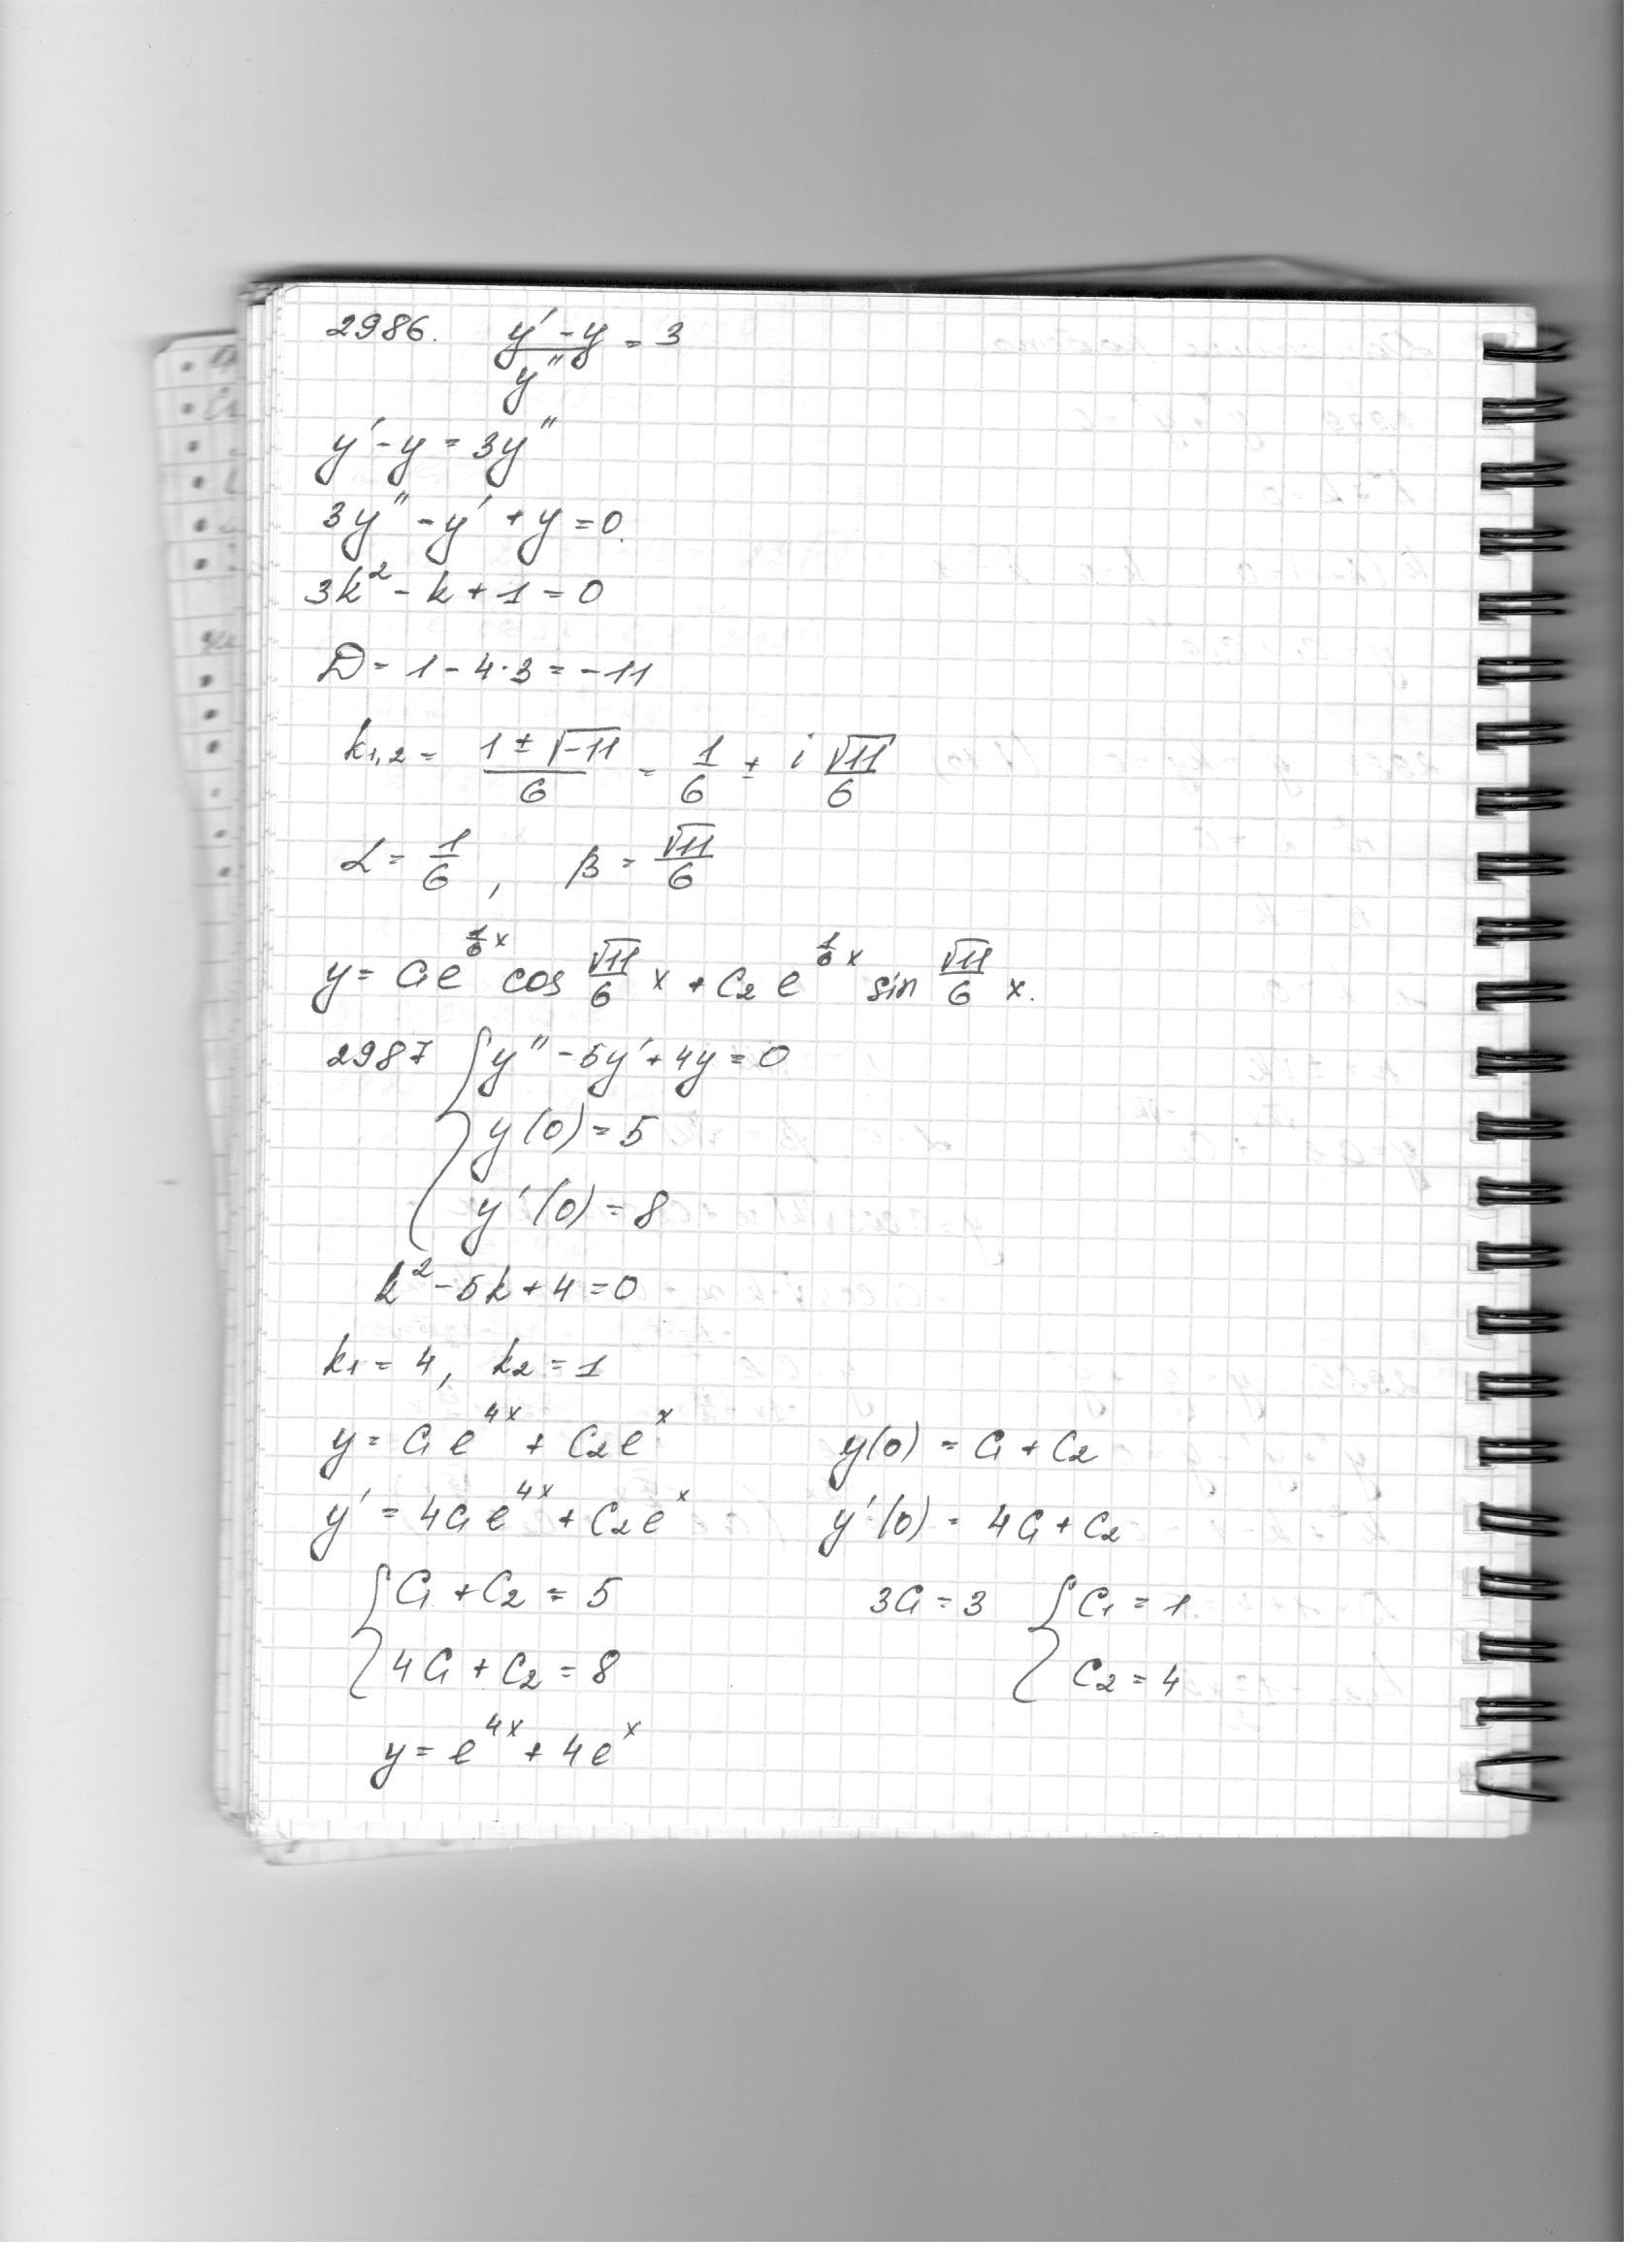 2986. (y' - y)/y'' = 3
y' - y = 3y''
3y'' - y' + y = 0.
3k² - k + 1 = 0
D = 1 - 4·3 = -11
k₁,₂ = (1 ± √-11)/6 = 1/6 ± i √11/6
α = 1/6, β = √11/6
y = C₁e^(1/6 x) cos √11/6 x + C₂e^(1/6 x) sin √11/6 x.
2987 { y'' - 5y' + 4y = 0
y(0) = 5
y'(0) = 8
k² - 5k + 4 = 0
k₁ = 4, k₂ = 1
y = C₁e^(4x) + C₂e^x y(0) = C₁ + C₂
y' = 4C₁e^(4x) + C₂e^x y'(0) = 4C₁ + C₂
{ C₁ + C₂ = 5 3C₁ = 3 { C₁ = 1
4C₁ + C₂ = 8 C₂ = 4
y = e^(4x) + 4e^x